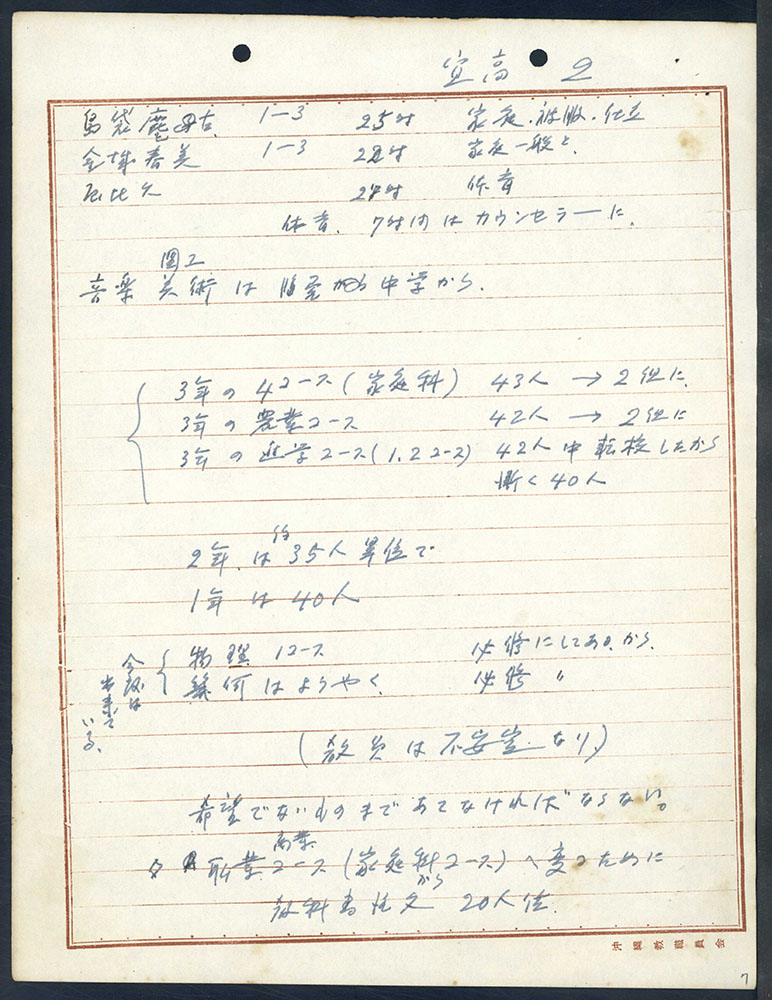 宜高 2
島袋 1-3 25時 家庭.被服.仕立
金城春美 1-3 22時 家庭一般と.
27時 体育
体育. 7時内はカウンセラーに.
図工
音楽 美術は から中学から.
3年の4コース(家庭科) 43人 → 2組に.
3年の農業コース 42人 → 2組に
3年の進学コース(1.2コース) 42人中転校したから
漸く40人
2年.は35人単位で
1年は40人
物理 1コース 必修にしてあるから.
幾何はようやく. 必修 〃
会話は
出来て
いる.
(教員は不安定なり.)
希望でないものまであてなければならない。
商業
職業コース(家庭科コース)へ変るために
から
教科書注文 20人位.
沖縄教職員会
7